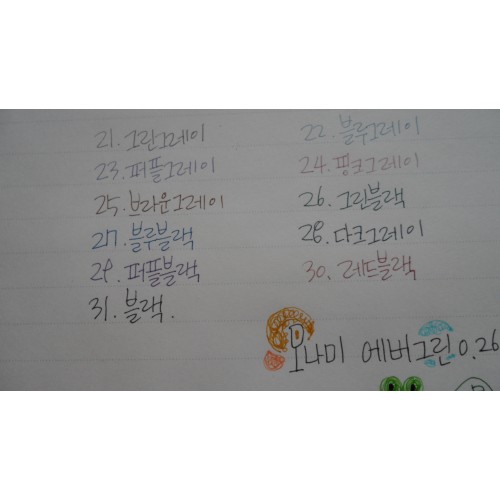 21. 그린그레이 22. 블루그레이
23. 퍼플그레이 24. 핑크그레이
25. 브라운그레이 26. 그린블랙
27. 블루블랙 28. 다크그레이
29. 퍼플블랙 30. 레드블랙
31. 블랙.
모나미 에버그린 0.26